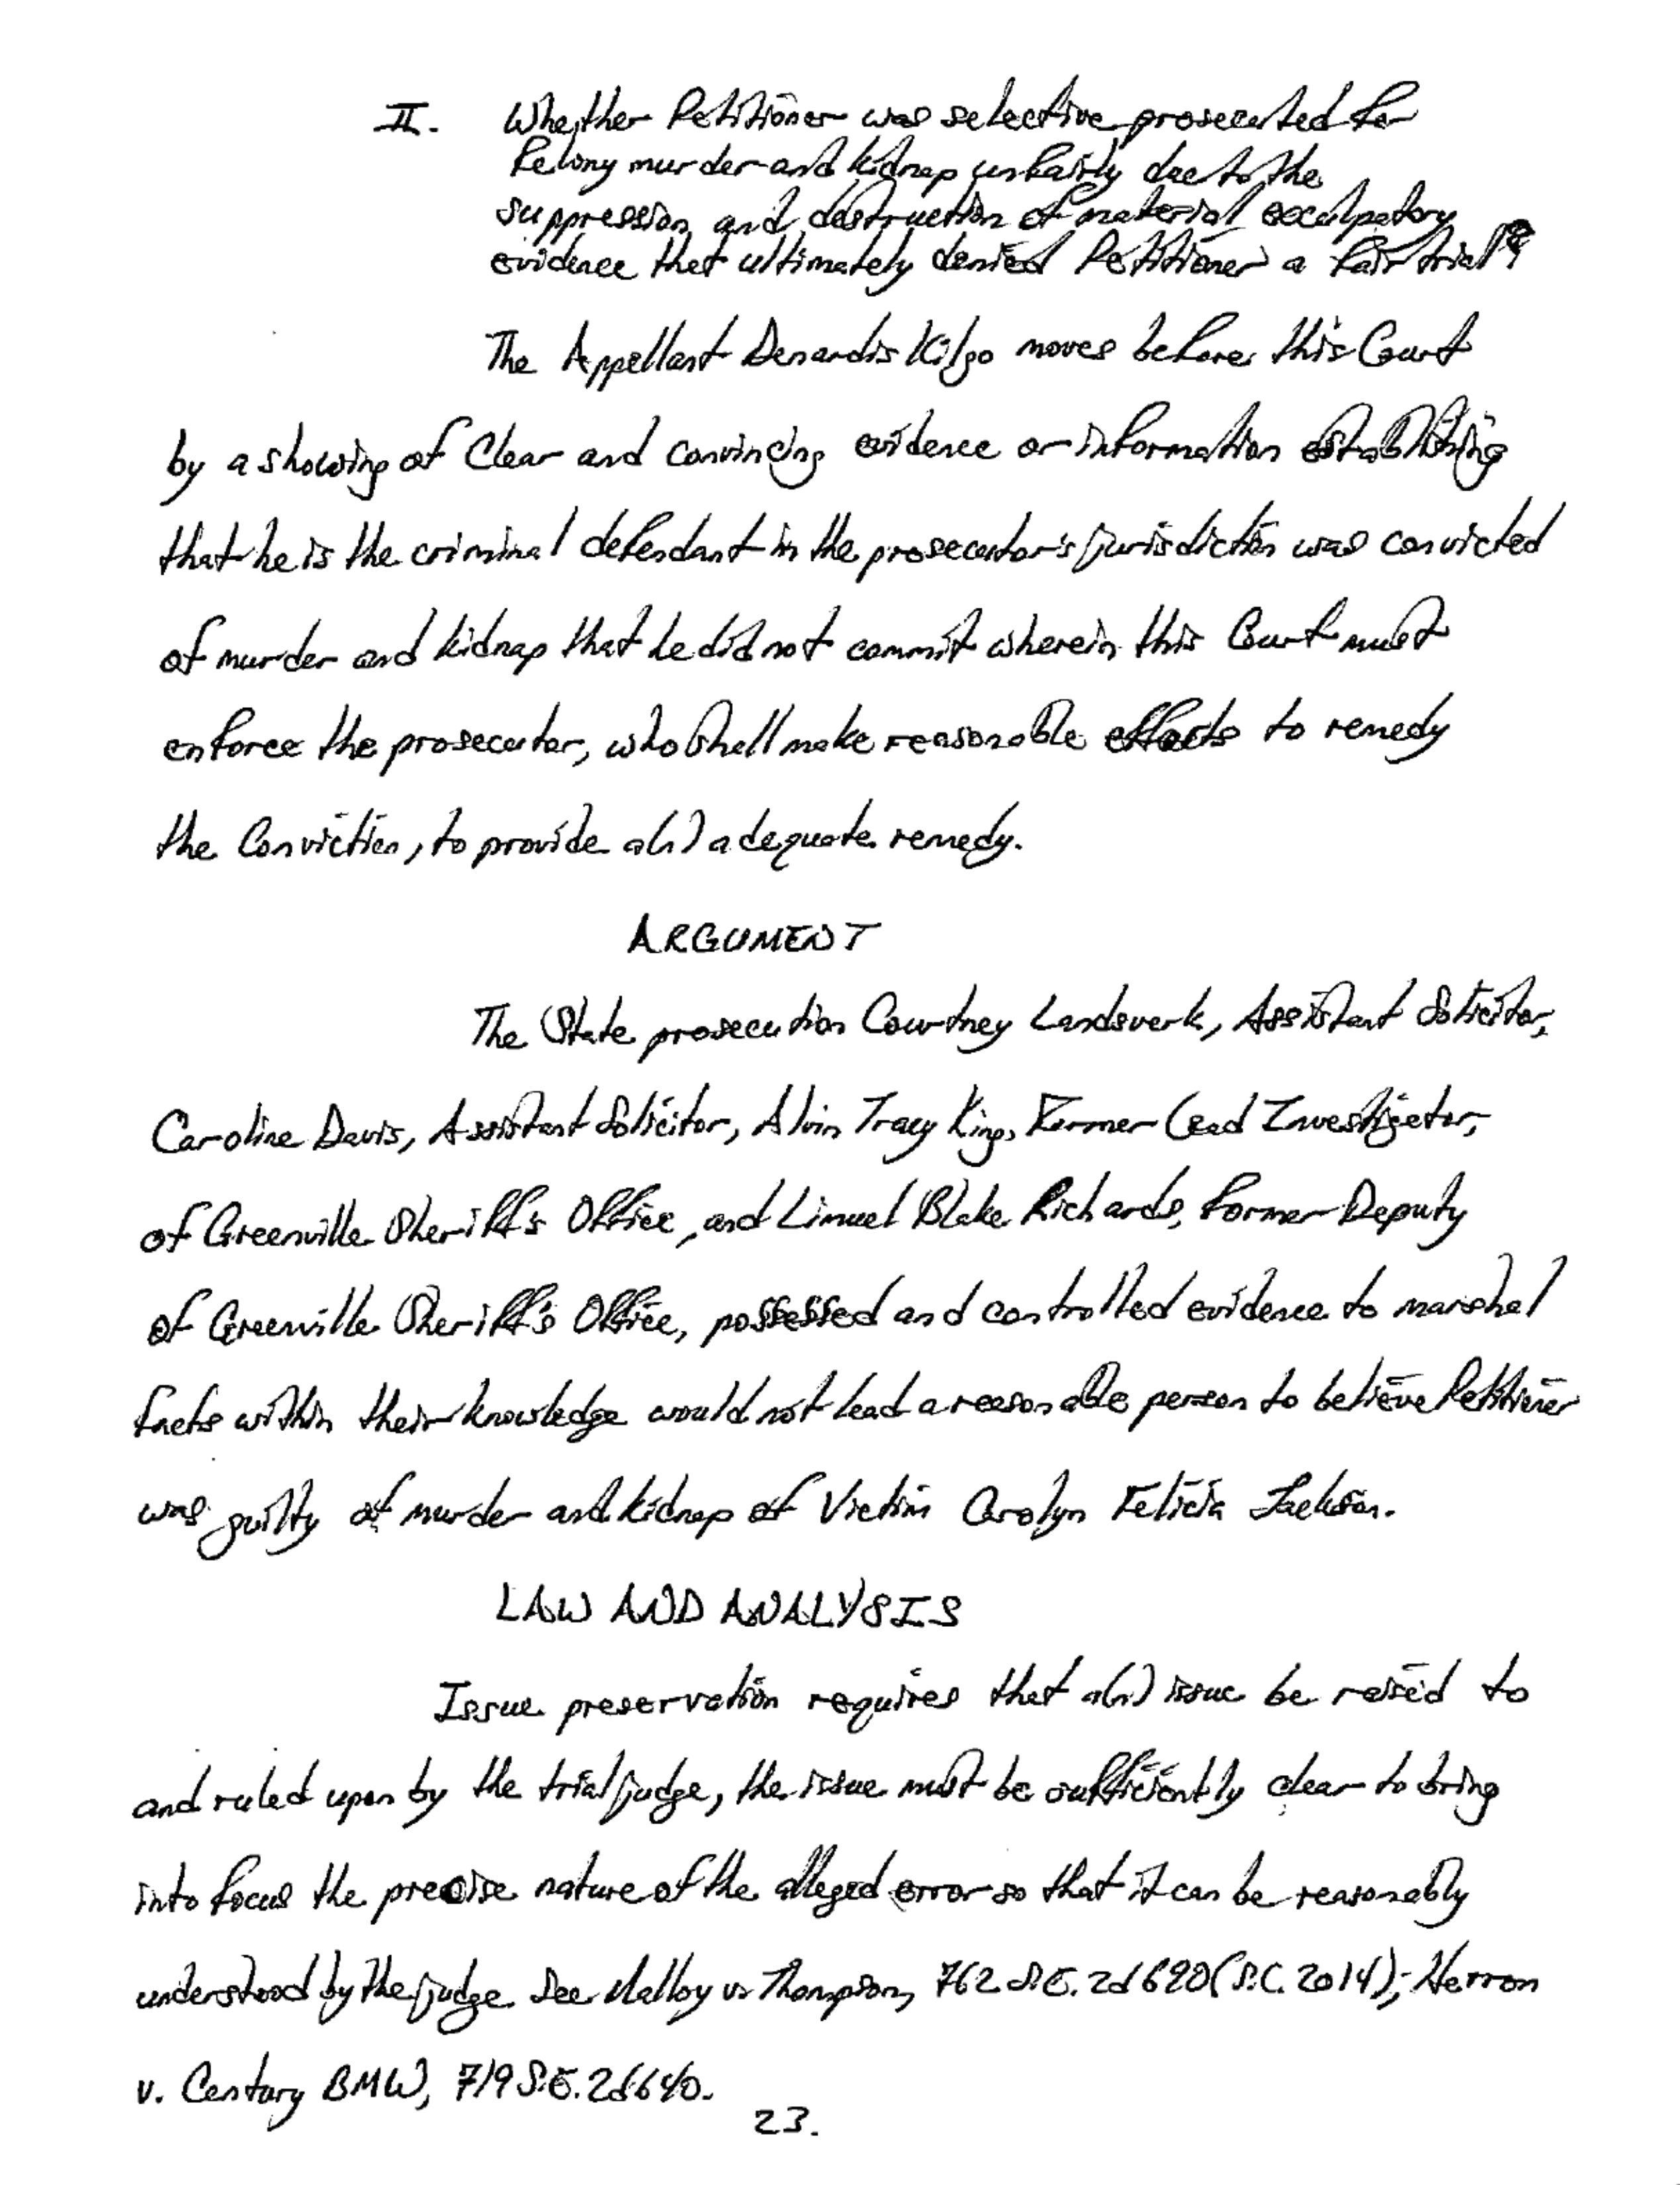 II. Whether Petitioner was selective prosecuted for
felony murder and kidnap unfairly due to the
suppression and destruction of material exculpatory
evidence that ultimately denied Petitioner a fair trial?
The Appellant Denardis Kilgo moves before this Court
by a showing of Clear and convincing evidence or information establishing
that he is the criminal defendant in the prosecutor's jurisdiction was convicted
of murder and kidnap that he did not commit wherein this Court must
enforce the prosecutor, who shall make reasonable efforts to remedy
the Conviction, to provide a(n) adequate remedy.
ARGUMENT
The State prosecution Courtney Landsverk, Assistant Solicitor,
Caroline Davis, Assistant Solicitor, Alvin Tracy King, Former Lead Investigator,
of Greenville Sheriff's Office, and Limuel Blake Richards, former Deputy
of Greenville Sheriff's Office, possessed and controlled evidence to marshal
facts within their knowledge would not lead a reasonable person to believe Petitioner
was guilty of murder and kidnap of Victim Carolyn Felicia Jackson.
LAW AND ANALYSIS
Issue preservation requires that a(n) issue be raised to
and ruled upon by the trial judge, the issue must be sufficiently clear to bring
into focus the precise nature of the alleged error so that it can be reasonably
understood by the judge. See Malloy vs Thompson, 762 S.E. 2d 690 (S.C. 2014); Herron
v. Century BMW, 719 S.E. 2d 640.
23.